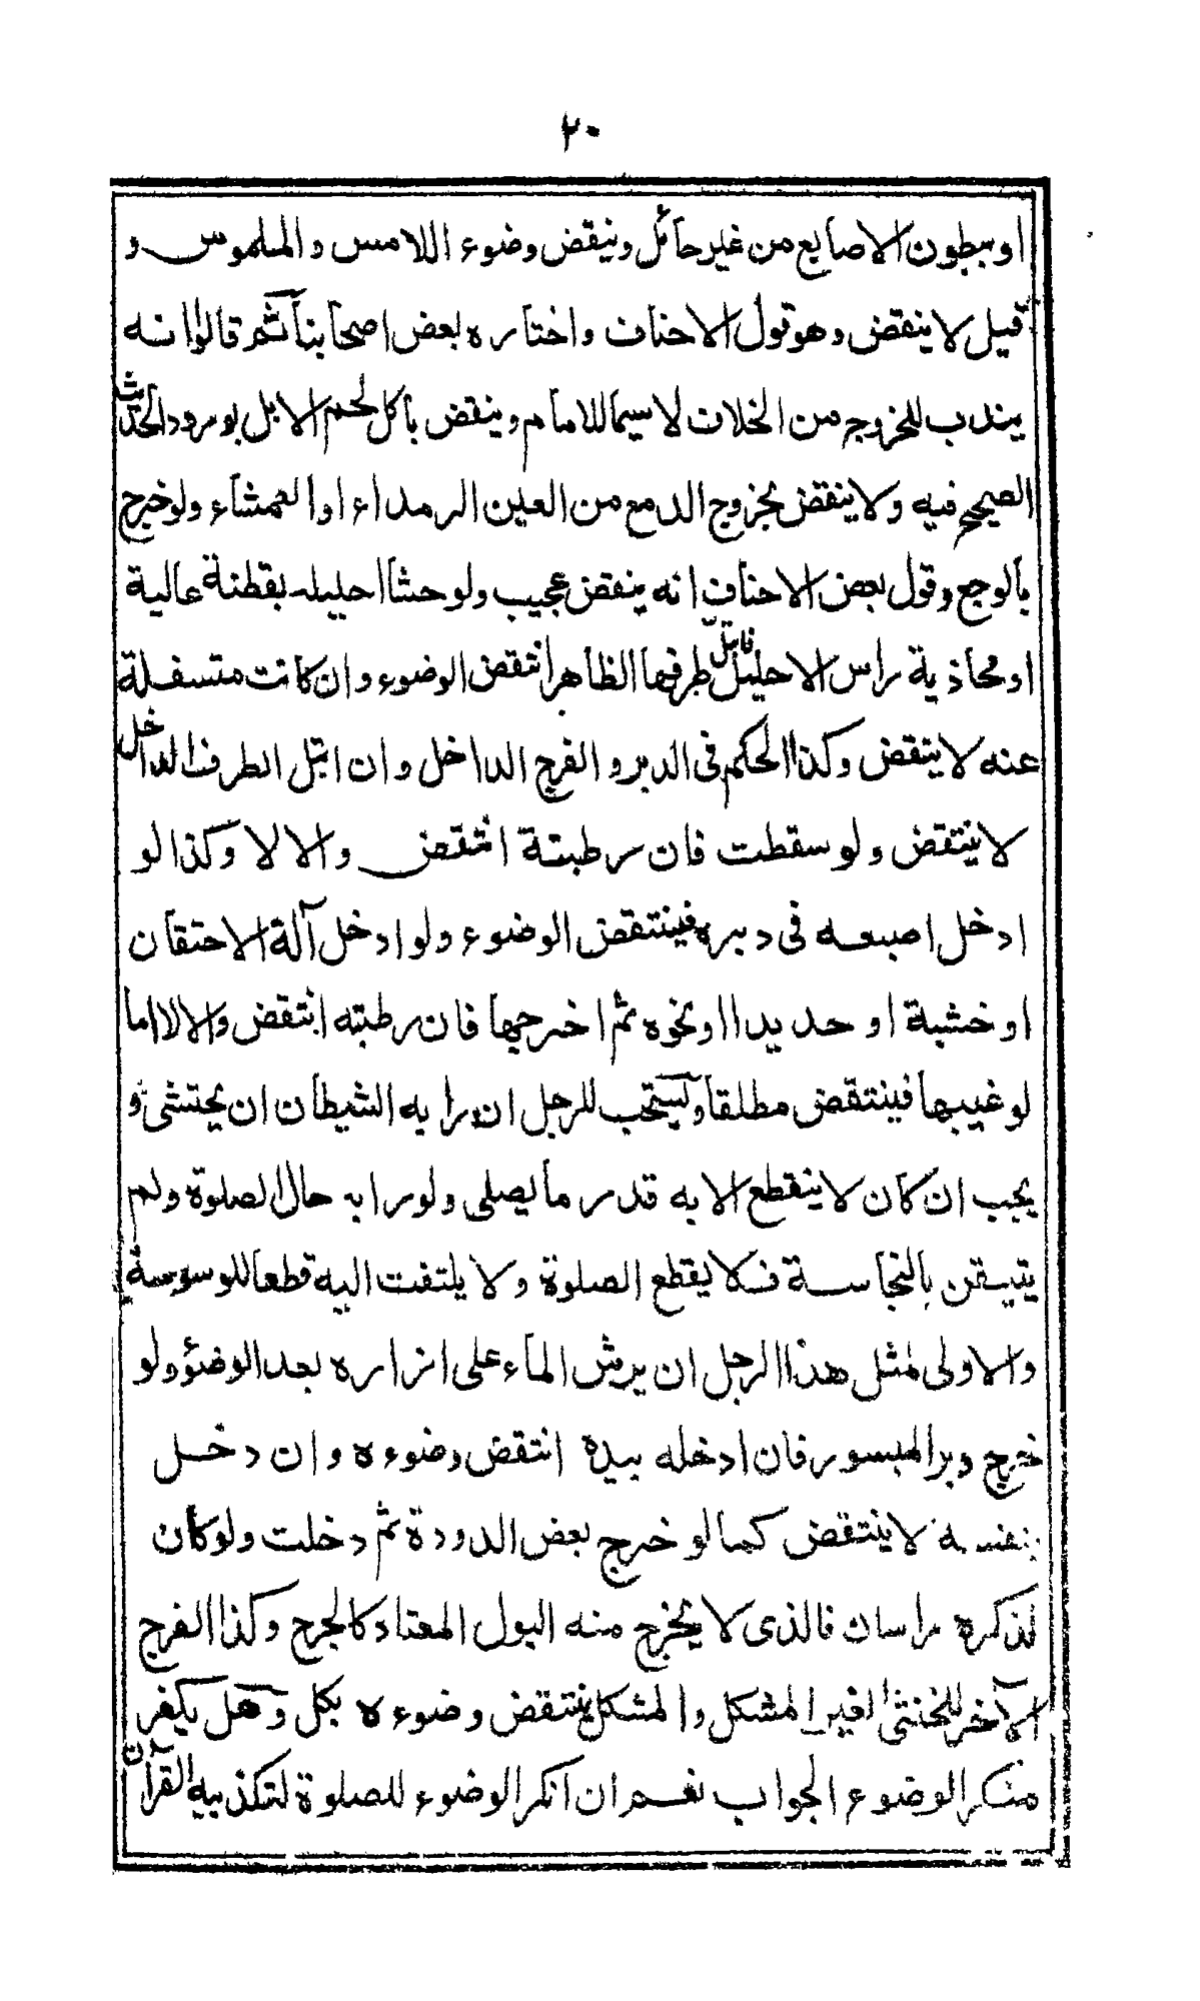 ٢٠
او ببطون الاصابع من غير حائل وينقض وضوء اللامس والملموس و
قيل لا ينقض وهو قول الاحناف واختاره بعض اصحابنا ثم قالوا انه
يندب للخروج من الخلاف لا سيما للامام وينقض باكل لحم الابل لورود الحديث
الصحيح فيه ولا ينقض بخروج الدمع من العين الرمداء او العمشاء ولو خرج
بالوجع وقول بعض الاحناف انه ينقض عجيب ولو حشا احليله بقطنة عالية
او محاذية راس الاحليل فابتل طرفها الظاهر انتقض الوضوء وان كانت متسفلة
عنه لا ينتقض وكذا الحكم فى الدبر والفرج الداخل وان ابتل الطرف الداخل
لا ينتقض ولو سقطت فان رطبتة انتقض والا لا وكذا لو
ادخل اصبعه فى دبره فينتقض الوضوء ولو ادخل آلة الاحتقان
او خشبة او حديدا او نحوه ثم اخرجها فان رطبته انتقض والا لا اما
لو غيبها فينتقض مطلقا ويستحب للرجل ان رابه الشيطان ان يحتشى و
يجب ان كان لا ينقطع الا به قدر ما يصلى ولو رابه حال الصلوة ولم
يتيقن بالنجاسة فلا يقطع الصلوة ولا يلتفت اليه قطعا للوسوسة
والاولى لمثل هذا الرجل ان يرش الماء على ازاره بعد الوضوء ولو
خرج دبر المبسور فان ادخله بيده انتقض وضوءه وان دخل
بنفسه لا ينتقض كما لو خرج بعض الدودة ثم دخلت ولو كان
لذكره راسان فالذى لا يخرج منه البول المعتاد كالجرح وكذا الفرج
الآخر للخنثى الغير المشكل والمشكل ينتقض وضوءه بكل وهل يكفر
منكر الوضوء الجواب نعم ان انكر الوضوء للصلوة لتكذيبه القرآن